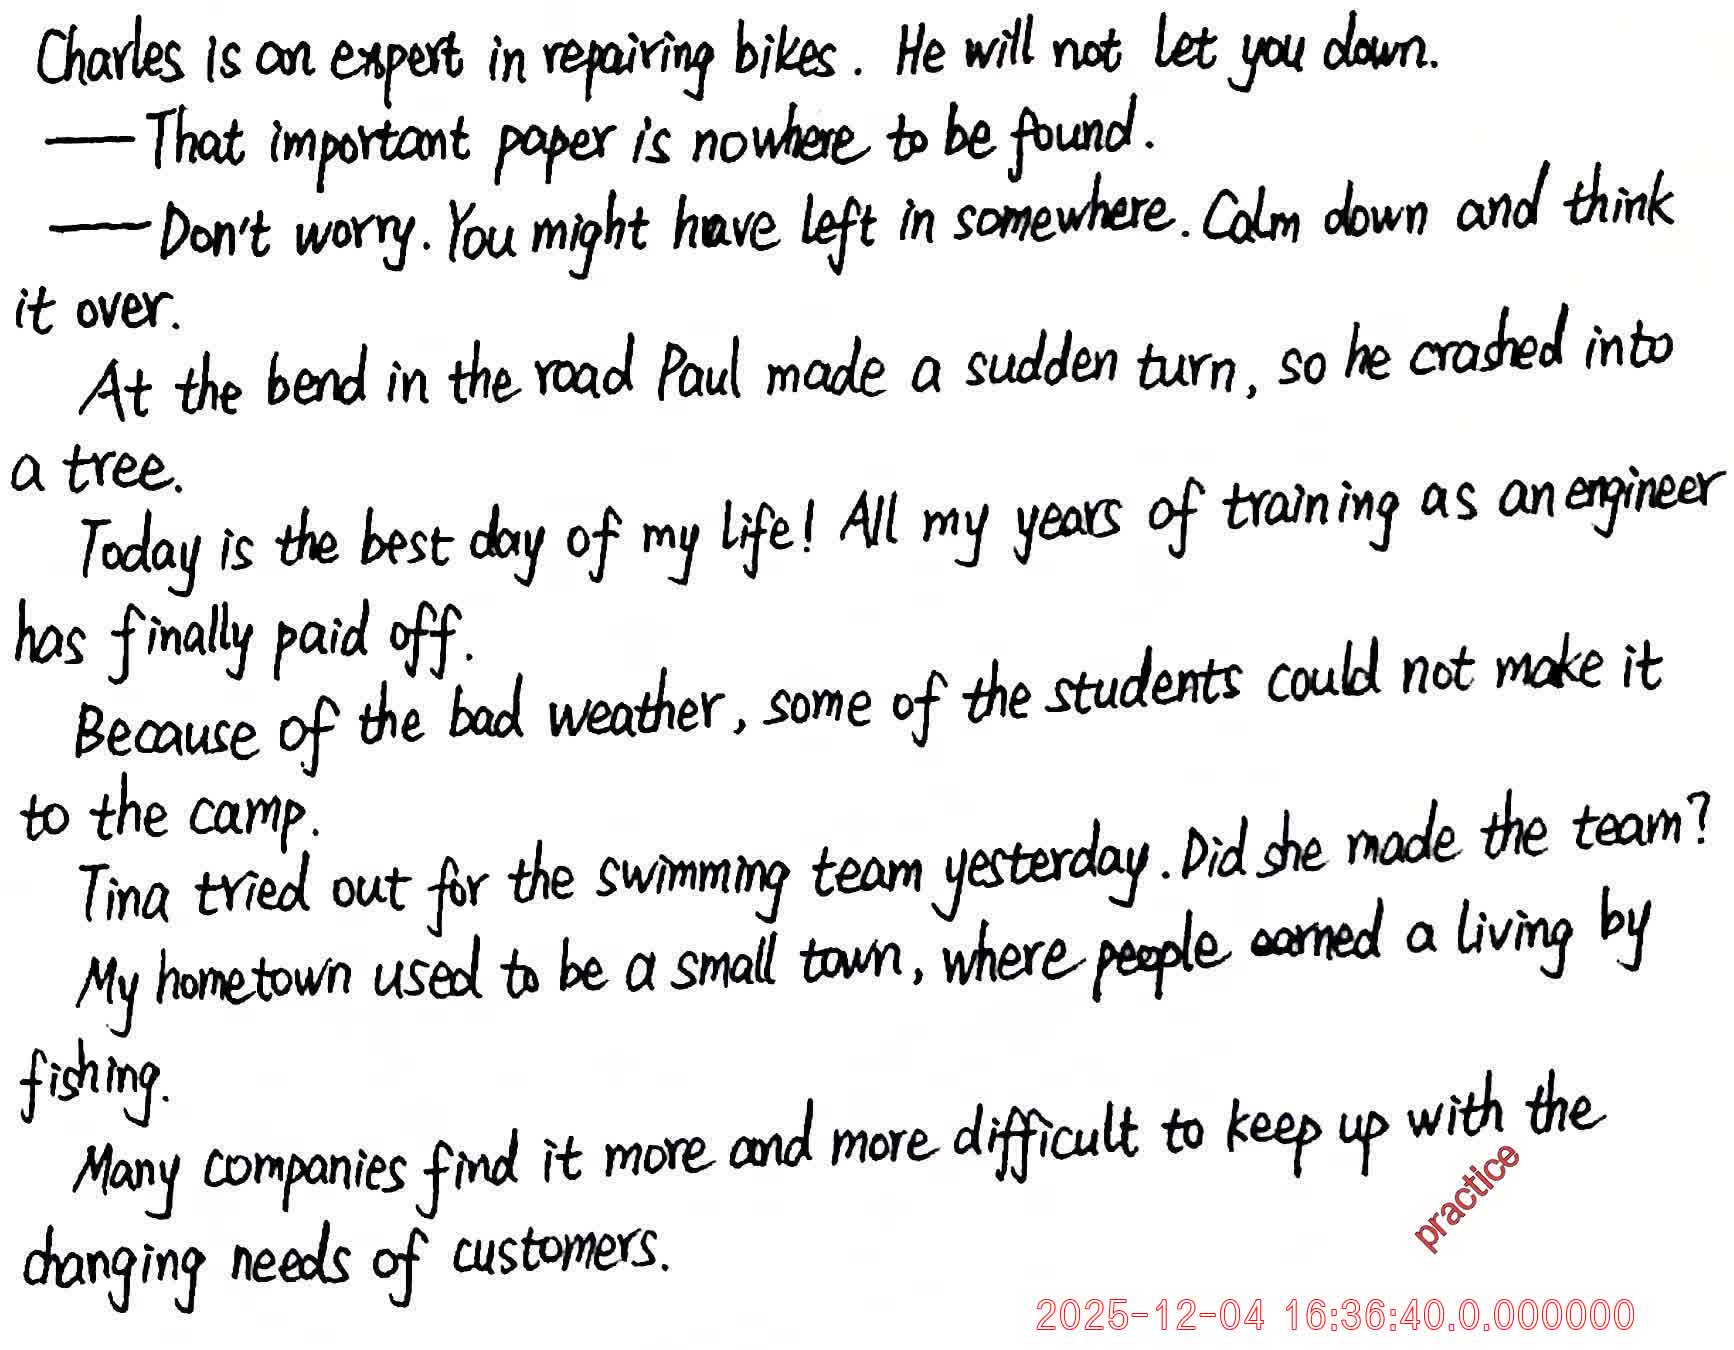 Charles is an expert in repairing bikes. He will not let you down.
——That important paper is nowhere to be found.
——Don't worry. You might have left in somewhere. Calm down and think
it over.
At the bend in the road Paul made a sudden turn, so he crashed into
a tree.
Today is the best day of my life! All my years of training as an engineer
has finally paid off.
Because of the bad weather, some of the students could not make it
to the camp.
Tina tried out for the swimming team yesterday. Did she made the team?
My hometown used to be a small town, where people earned a living by
fishing.
Many companies find it more and more difficult to keep up with the
changing needs of customers.
practice
2025-12-04 16:36:40.0.000000